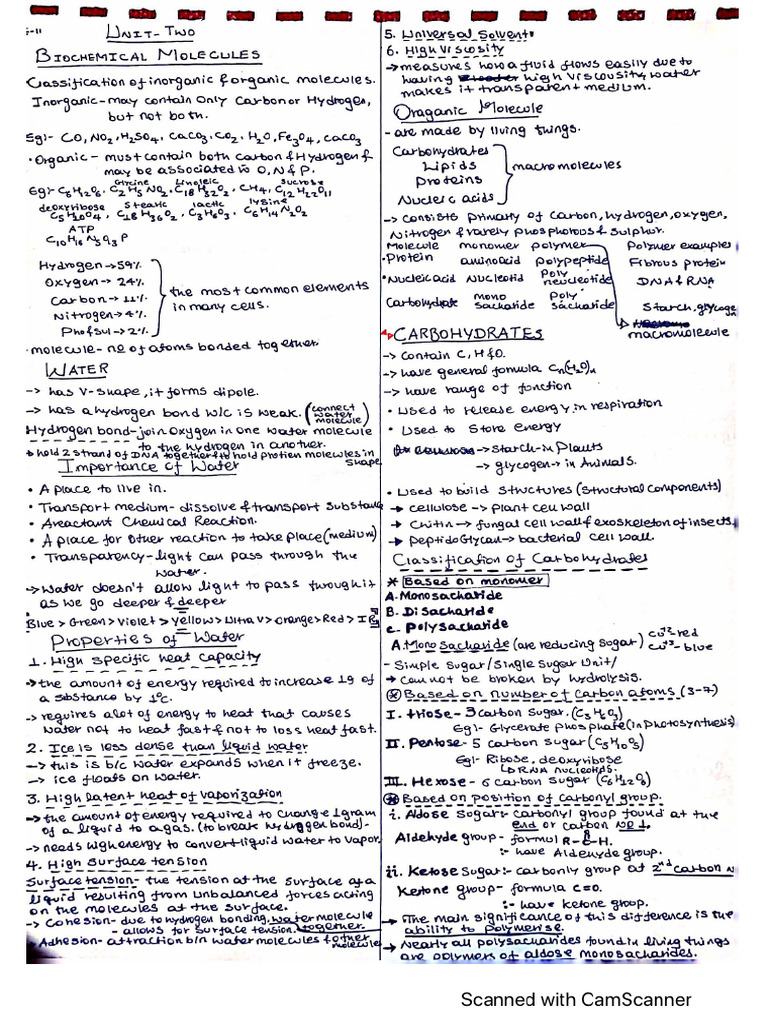 UNIT-TWO
BIOCHEMICAL MOLECULES
Classification of inorganic & organic molecules.
Inorganic-may contain only Carbon or Hydrogen,
but not both.
Eg:- CO, NO2, H2SO4, CaCO3, CO2, H2O, Fe3O4, CaCO3
• Organic - must contain both Carbon & Hydrogen &
may be associated to O, N & P.
Glycine Linoleic Sucrose
Eg:- C6H12O6, C2H5NO2, C18H32O2, CH4, C12H22O11
deoxyribose Stearic lactic lysine
C5H10O4, C18H36O2, C3H6O3, C6H14N2O2
ATP
Hydrogen → 59%
Oxygen → 24%
Carbon → 11%
Nitrogen → 4%
Pho&Sul → 2%
the most common elements
in many cells.
• molecule - no of atoms bonded together.
WATER
-> has V-shape, it forms dipole.
-> has a hydrogen bond w/c is weak. (connect water molecule)
Hydrogen bond-join Oxygen in one water molecule
to the hydrogen in another.
→ hold 2 strand of DNA together & to hold protien molecules in shape
Importance of Water
• A place to live in.
• Transport medium- dissolve & transport substance
• A reactant Chemical Reaction.
• A place for Other reaction to take place (medium)
• Transparency-light can pass through the
water.
-> Water doesn't allow light to pass through it
as we go deeper & deeper
Blue > Green > Violet > Yellow > Ultra V > Orange > Red > IR
Properties of Water
1. High specific heat capacity
→ the amount of energy required to increase 1g of
a substance by 1°C.
-> requires a lot of energy to heat that causes
water not to heat fast & not to loss heat fast.
2. Ice is less dense than liquid water
-> this is b/c water expands when it freeze.
-> ice floats on water.
3. High latent heat of vaporization
-> the amount of energy required to change 1gram
of a liquid to a gas. (to break hydroggen bond)-
-> needs high energy to convert liquid water to vapor.
4. High surface tension
Surface tension- the tension at the surface of a
liquid resulting from unbalanced forces acting
on the molecules at the surface.
-> Cohesion- due to hydrogen bonding, water molecule together
- allows for surface tension.
Adhesion- attraction b/n water molecules to other molecule
5. Universal Solvent
6. High Viscosity
→ measures how a fluid flows easily due to
having high viscousity, water
makes it transparent medium.
Oraganic Molecule
- are made by living things.
Carbohydrates
Lipids
Proteins
Nucleic acids
macromolecules
-> consists primary of Carbon, hydrogen, oxygen,
Nitrogen & rarely phosphorous & Sulphur.
Molecule monomer polymer Polymer examples
• Protein aminoacid polypeptide Fibrous protein
• Nucleic acid Nucleotid Poly neucleotide DNA & RNA
Carbohydrate mono sacharide Poly sacharide Starch, glycoge
macromolecule
CARBOHYDRATES
-> contain C, H & O.
-> have general formula Cn(H2O)n
-> have range of function
• Used to release energy in respiration
• Used to Store energy
-> Starch-in Plants
-> glycogen -> in Animals.
• Used to build structures (Structural components)
→ cellulose -> plant cell wall
→ Chitin -> fungal cell wall & exoskeleton of insects
→ Peptidoglycan -> bacterial cell wall.
Classification of Carbohydrates
* Based on monomer
A. Monosacharide
B. Disacharide
C. Polysacharide
A. Mono Sacharide (are reducing Sugar) Cu+2-red
Cu+3-blue
- Simple Sugar/Single Sugar Unit/
→ Cannot be broken by hydrolysis.
* Based on number of Carbon atoms (3-7)
I. triose- 3 carbon sugar. (C3H6O3)
Eg:- Glycerate phosphate (in Photosynthesis)
II. Pentose- 5 carbon sugar (C5H10O5)
Eg:- Ribose, deoxyribose
RNA nucleotids.
III. Hexose - 6 carbon sugar (C6H12O6)
* Based on position of carbonyl group.
i. Aldose Sugar:- carbonyl group found at the
end or carbon no 1.
Aldehyde group- formul R-C-H.
:- have Aldehyde group.
ii. Ketose Sugar:- carbonly group at 2nd carbon N
Ketone group- formula C=O.
:- have ketone group.
→ The main significance of this difference is the
ability to Polymerise.
→ Nearly all polysacharides found in living things
are polymers of aldose monosacharides.
Scanned with CamScanner